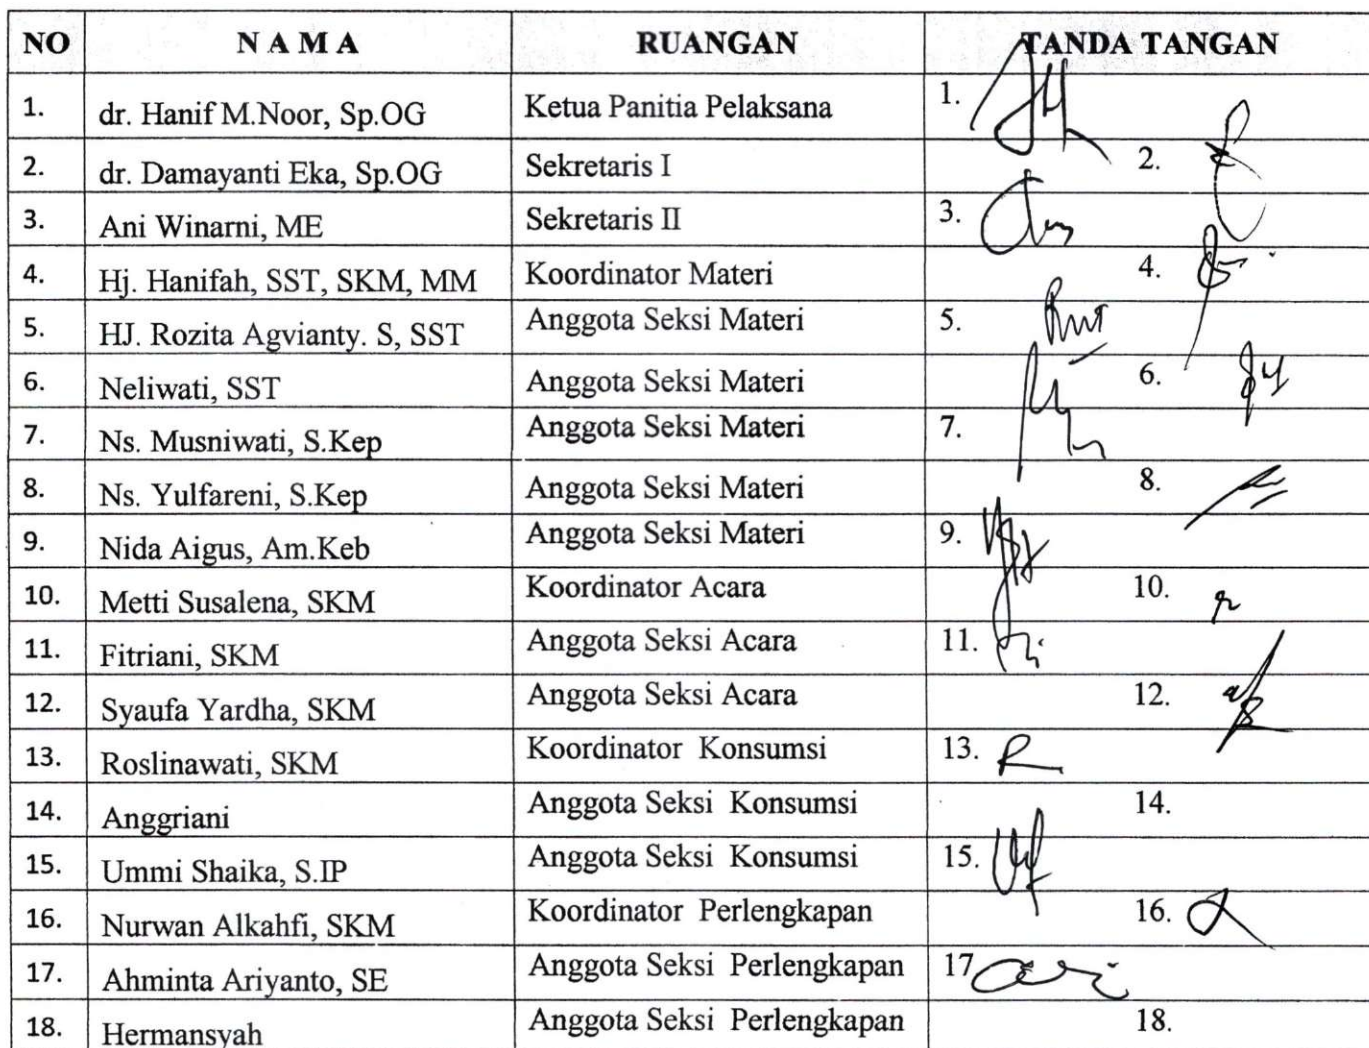 NO N A M A RUANGAN TANDA TANGAN
1. dr. Hanif M.Noor, Sp.OG Ketua Panitia Pelaksana 1.
2. dr. Damayanti Eka, Sp.OG Sekretaris I 2.
3. Ani Winarni, ME Sekretaris II 3.
4. Hj. Hanifah, SST, SKM, MM Koordinator Materi 4.
5. HJ. Rozita Agvianty. S, SST Anggota Seksi Materi 5.
6. Neliwati, SST Anggota Seksi Materi 6.
7. Ns. Musniwati, S.Kep Anggota Seksi Materi 7.
8. Ns. Yulfareni, S.Kep Anggota Seksi Materi 8.
9. Nida Aigus, Am.Keb Anggota Seksi Materi 9.
10. Metti Susalena, SKM Koordinator Acara 10.
11. Fitriani, SKM Anggota Seksi Acara 11.
12. Syaufa Yardha, SKM Anggota Seksi Acara 12.
13. Roslinawati, SKM Koordinator Konsumsi 13.
14. Anggriani Anggota Seksi Konsumsi 14.
15. Ummi Shaika, S.IP Anggota Seksi Konsumsi 15.
16. Nurwan Alkahfi, SKM Koordinator Perlengkapan 16.
17. Ahminta Ariyanto, SE Anggota Seksi Perlengkapan 17
18. Hermansyah Anggota Seksi Perlengkapan 18.